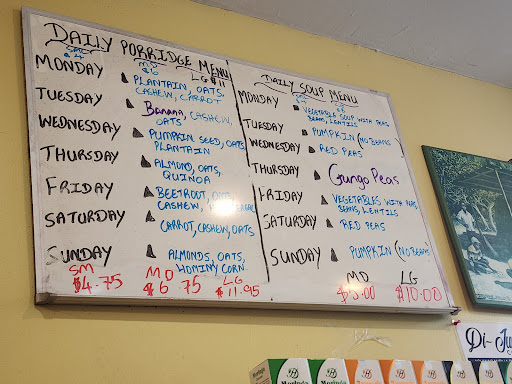 DAILY PORRIDGE MENU
SM MD LG
$4 $6 $11
MONDAY PLANTAIN, OATS,
CASHEW, CARROT
TUESDAY Banana, CASHEW,
OATS
WEDNESDAY PUMPKIN SEED, OATS
PLANTAIN
THURSDAY ALMOND, OATS,
QUINOA
FRIDAY BEETROOT, OATS,
CASHEW,
SATURDAY CARROT, CASHEW, OATS
SUNDAY ALMONDS, OATS,
HOMINY CORN.
SM MD LG
$4.75 $6 75 $11.95
DAILY SOUP MENU
MONDAY VEGETABLE SOUP WITH PEAS
BEANS, LENTILS
TUESDAY PUMPKIN (NO BEANS
WEDNESDAY RED PEAS
THURSDAY Gungo Peas
FRIDAY VEGETABLES WITH PEAS
BEANS, LENTILS
SATURDAY RED PEAS
SUNDAY PUMPKIN (NO BEANS
MD LG
$10.00
Di-Ju
Morinda
Morinda